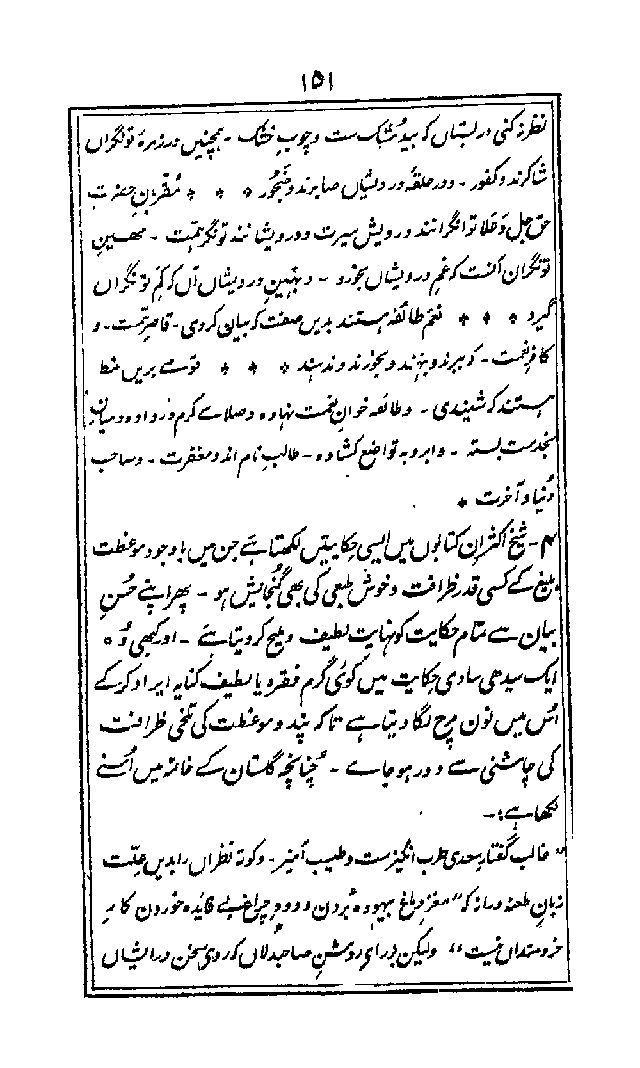 ۱۵۱
نظر نہ کنی در بستاں کہ بید مُشک ست و چوبِ خُشک ۔ ہمچنیں در زمرۂ تونگراں
شاکرند و کفور ۔ و در حلقۂ درویشاں صابرند و ضَجُور * * * مُقرّبِ حضرتِ
حق جل و عَلا توانگرانند درویش سیرت و درویشانند تونگر ہمّت ۔ مہینِ
تونگران آنست کہ غمِ درویشاں بخورد ۔ و بہینِ درویشاں آں کہ کم تونگراں
گیرد * * * نعم طائفہ ہستند بدیں صفت کہ بیان کردی ۔ قاصر ہمّت ۔ و
کافر نعمت ۔ کہ ببرند و بنہند و نخورند و ندہند * * * قومے بریں نمط
ہستند کہ شنیدی ۔ و طائفہ خوانِ نعمت نہادہ و صلاے کرم در دادہ و میان
بخدمت بستہ ۔ و ابرو بہ تواضع کشادہ ۔ طالبِ نام اند و مغفرت ۔ و صاحب
دُنیا و آخرت *
۴ ۔ شیخ اکثر ان کتابوں میں ایسی حکایتیں لکھتا ہے جن میں باوجود موعظت
بلیغ کے کسی قدر ظرافت و خوش طبعی کی بھی گُنجایش ہو ۔ پھر اپنے حُسنِ
بیان سے تمام حکایت کو نہایت لطیف و ملیح کر دیتا ہے ۔ اور کبھی وُہ
ایک سیدھی سادی حکایت میں کوئی گرم فقرہ یا لطیف کنایہ ایراد کر کے
اُس میں نون مرچ لگا دیتا ہے تاکہ پند و موعظت کی تلخی ظرافت
کی چاشنی سے دور ہو جاے ۔ چنانچہ گلستان کے خاتمہ میں اُسنے
لکھا ہے :۔
" غالب گفتارِ سعدی طرب انگیزست و طیبت آمیز ۔ و کوتہ نظراں را بدیں علّت
زبانِ طعنہ دراز کہ " مغزِ دماغ بیہودہ بُردن و دودِ چراغ بے فائدہ خوردن کارِ
خردمنداں نیست " ولیکن بر رای روشنِ صاحبدلاں کہ روی سخن در ایشاں